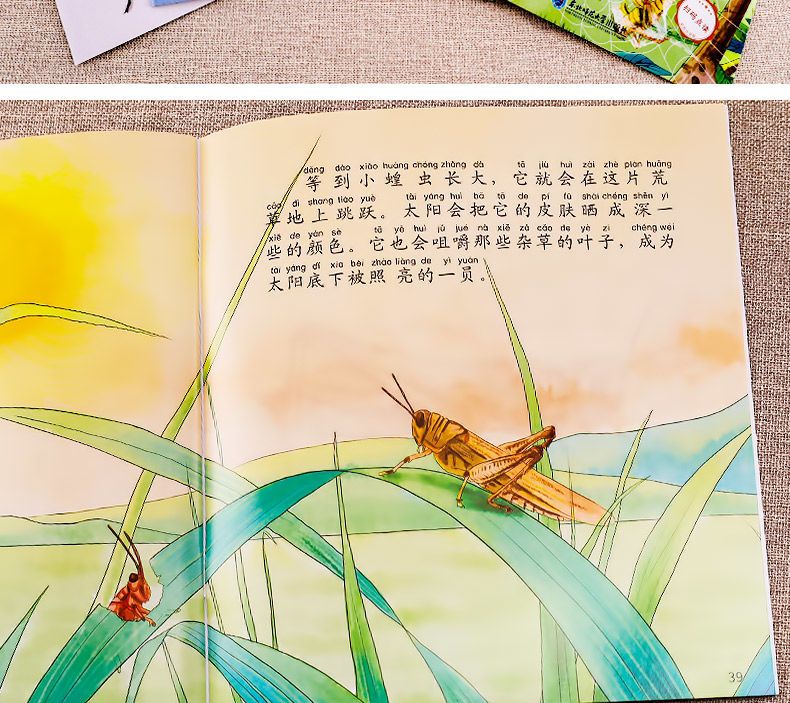 děng dào xiǎo huáng chóng zhǎng dà tā jiù huì zài zhè piàn huāng
等到小蝗虫长大，它就会在这片荒
cǎo dì shang tiào yuè tài yáng huì bǎ tā de pí fū shài chéng shēn yì
草地上跳跃。太阳会把它的皮肤晒成深一
xiē de yán sè tā yě huì jǔ jué nà xiē zá cǎo de yè zi chéng wéi
些的颜色。它也会咀嚼那些杂草的叶子，成为
tài yáng dǐ xià bèi zhào liàng de yì yuán
太阳底下被照亮的一员。
39